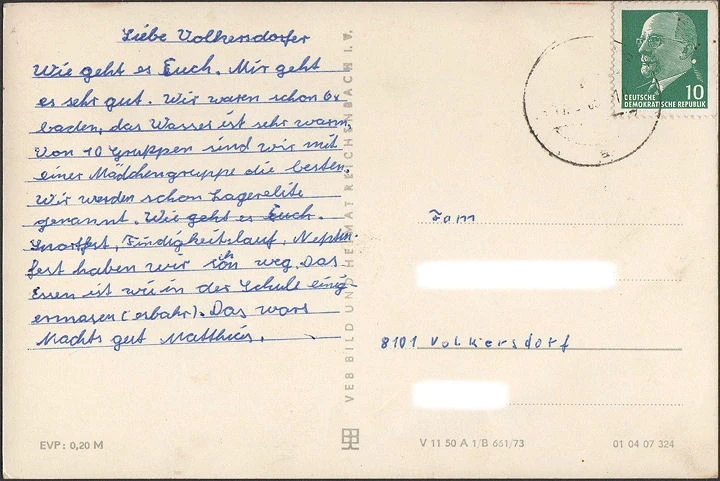 Liebe Volkersdorfer
Wie geht es Euch. Mir geht
es sehr gut. Wir waren schon 6x
baden, das Wasser ist sehr warm.
Von 10 Gruppen sind wir mit
einer Mädchengruppe die besten.
Wir werden schon Lagerelite
genannt. Wie geht es Euch.
Sportfest, Findigkeitslauf, Neptun
fest haben wir schon weg. Das
Essen ist wie in der Schule einig
ermasen (esbahr). Das wars
Machts gut Matthias.
VEB BILD UND HEIMAT REICHENBACH I. V.
DEUTSCHE
DEMOKRATISCHE REPUBLIK 10
Fam
8101 Volkersdorf
EVP: 0,20 M
V 11 50 A 1/B 661/73
01 04 07 324